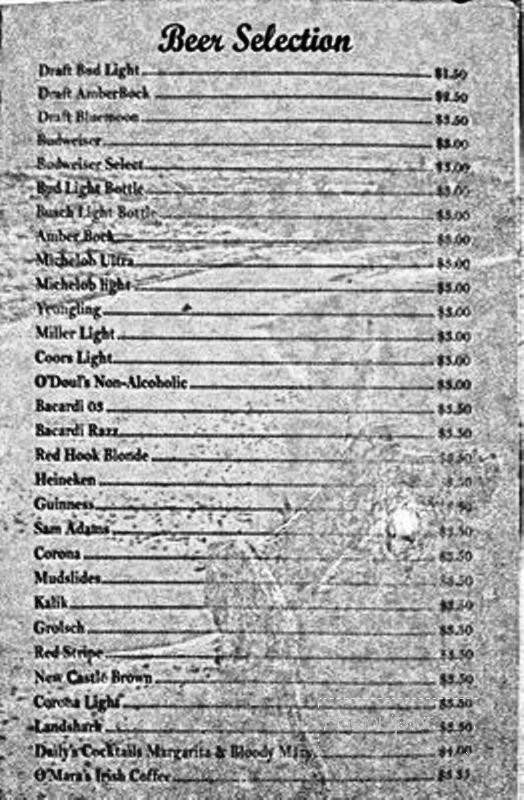 Beer Selection
Draft Bud Light
Draft AmberBock
Draft Bluemoon $3.50
Budweiser $3.00
Budweiser Select $3.00
Bud Light Bottle $3.00
Busch Light Bottle $3.00
Amber Bock $3.00
Michelob Ultra $3.00
Michelob light $3.00
Yeungling $3.00
Miller Light $3.00
Coors Light $3.00
O'Doul's Non-Alcoholic $3.00
Bacardi 03 $3.50
Bacardi Razz $3.50
Red Hook Blonde
Heineken
Guinness
Sam Adams $3.50
Corona $3.50
Mudslides $3.50
Kalik $3.50
Grolsch $3.50
Red Stripe $3.50
New Castle Brown $3.50
Corona Light $3.50
Landshark $3.50
Daily's Cocktails Margarita & Bloody Mary
O'Mara's Irish Coffee